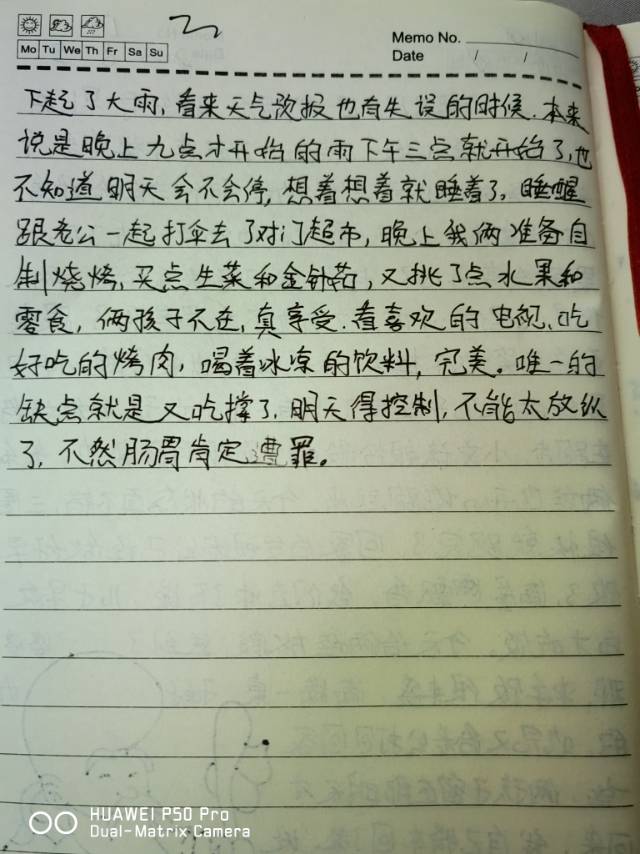 Memo No.
Mo Tu We Th Fr Sa Su
Date / /
下起了大雨,看来天气预报也有失误的时候.本来
说是晚上九点才开始的雨下午三点就开始了,也
不知道明天会不会停,想着想着就睡着了,睡醒
跟老公一起打伞去了对门超市,晚上我俩准备自
制烧烤,买点生菜和金针菇,又挑了点水果和
零食,俩孩子不在,真享受.看喜欢的电视、吃
好吃的烤肉,喝着冰凉的饮料,完美。唯一的
缺点就是又吃撑了,明天得控制,不能太放纵
了,不然肠胃肯定遭罪。
HUAWEI P50 Pro
Dual-Matrix Camera